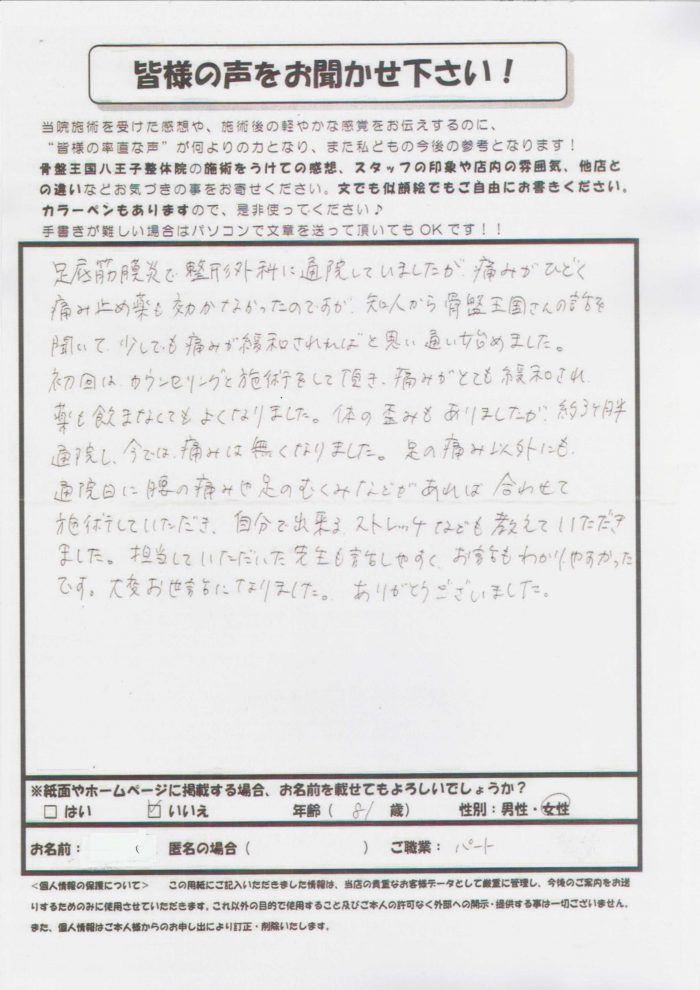 皆様の声をお聞かせ下さい！
当院施術を受けた感想や、施術後の軽やかな感覚をお伝えするのに、
“皆様の率直な声”が何よりの力となり、また私どもの今後の参考となります！
骨盤王国八王子整体院の施術をうけての感想、スタッフの印象や店内の雰囲気、他店と
の違いなどお気づきの事をお寄せください。文でも似顔絵でもご自由にお書きください。
カラーペンもありますので、是非使ってください♪
手書きが難しい場合はパソコンで文章を送って頂いてもOKです！！
足底筋膜炎で整形外科に通院していましたが、痛みがひどく
痛み止め薬も効かなかったのですが、知人から骨盤王国さんの話を
聞いて、少しでも痛みが緩和されればと思い通い始めました。
初回は、カウンセリングと施術をして頂き、痛みがとても緩和され、
薬も飲まなくてもよくなりました。体の歪みもありましたが、約3ヶ月半
通院し、今では、痛みは無くなりました。足の痛み以外にも、
通院日に腰の痛みや足のむくみなどがあれば合わせて
施術していただき、自分で出来るストレッチなども教えていただき
ました。担当していただいた先生も話しやすく、お話もわかりやすかった
です。大変お世話になりました。ありがとうございました。
※紙面やホームページに掲載する場合、お名前を載せてもよろしいでしょうか？
□ はい ☑ いいえ 年齢（ 歳） 性別：男性・女性
お名前： 匿名の場合（ ） ご職業：パート
＜個人情報の保護について＞ この用紙にご記入いただきました情報は、当店の貴重なお客様データとして厳重に管理し、今後のご案内をお送
りするためのみに使用させていただきます。これ以外の目的で使用すること及びご本人の許可なく外部への開示・提供する事は一切ございません。
また、個人情報はご本人様からのお申し出により訂正・削除いたします。